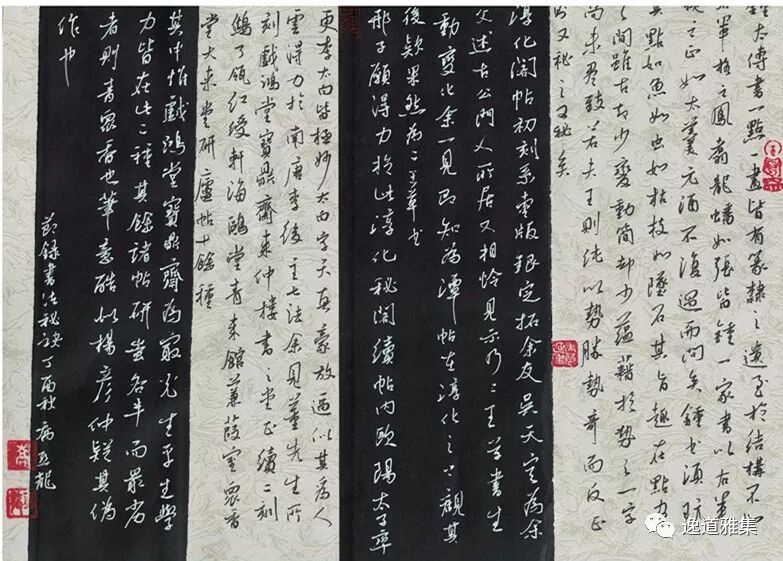 鍾太傅書一點一畫皆有篆隸之遺至於結構不如
右軍之鳳翥龍蟠如張皆鍾一家書以右軍
視之正如太羹元酒不復過而問矣鍾書須玩
其點如魚如虫如枯枝如墜石其旨趣在點畫
之間雖古却少變動簡却少蘊藉於勢之一字
尚未盡致若夫王則純以勢勝勢奇而反正
又秘之又秘矣
淳化閣帖初刻系棗版銀定拓余友吳天定為余
父述古公門人所居又相怜見示乃二王草書生
動變化余一見即知為潭帖在淳化之上觀其
後款果然為二王草書
邢子願得力於此淳化秘閣續帖內歐陽太子率
更李太白皆極妙太白字天真豪放逼似其為人
雲得力於南唐李後主七法余見董先生所
刻戲鴻堂寶鼎齋來仲樓書之堂正續二刻
鷦了瓴紅綬軒海鷗堂青來館蒹葭室眾香
堂大來堂研廬帖十餘種
其中惟戲鴻堂寶鼎齋為最先生平生學
力皆在此二種其餘諸帖研蚩各半而最劣
者則青眾香也筆意酷似楊彥仲疑其偽
作也
節錄書法秘訣丁酉秋
逸道雅集